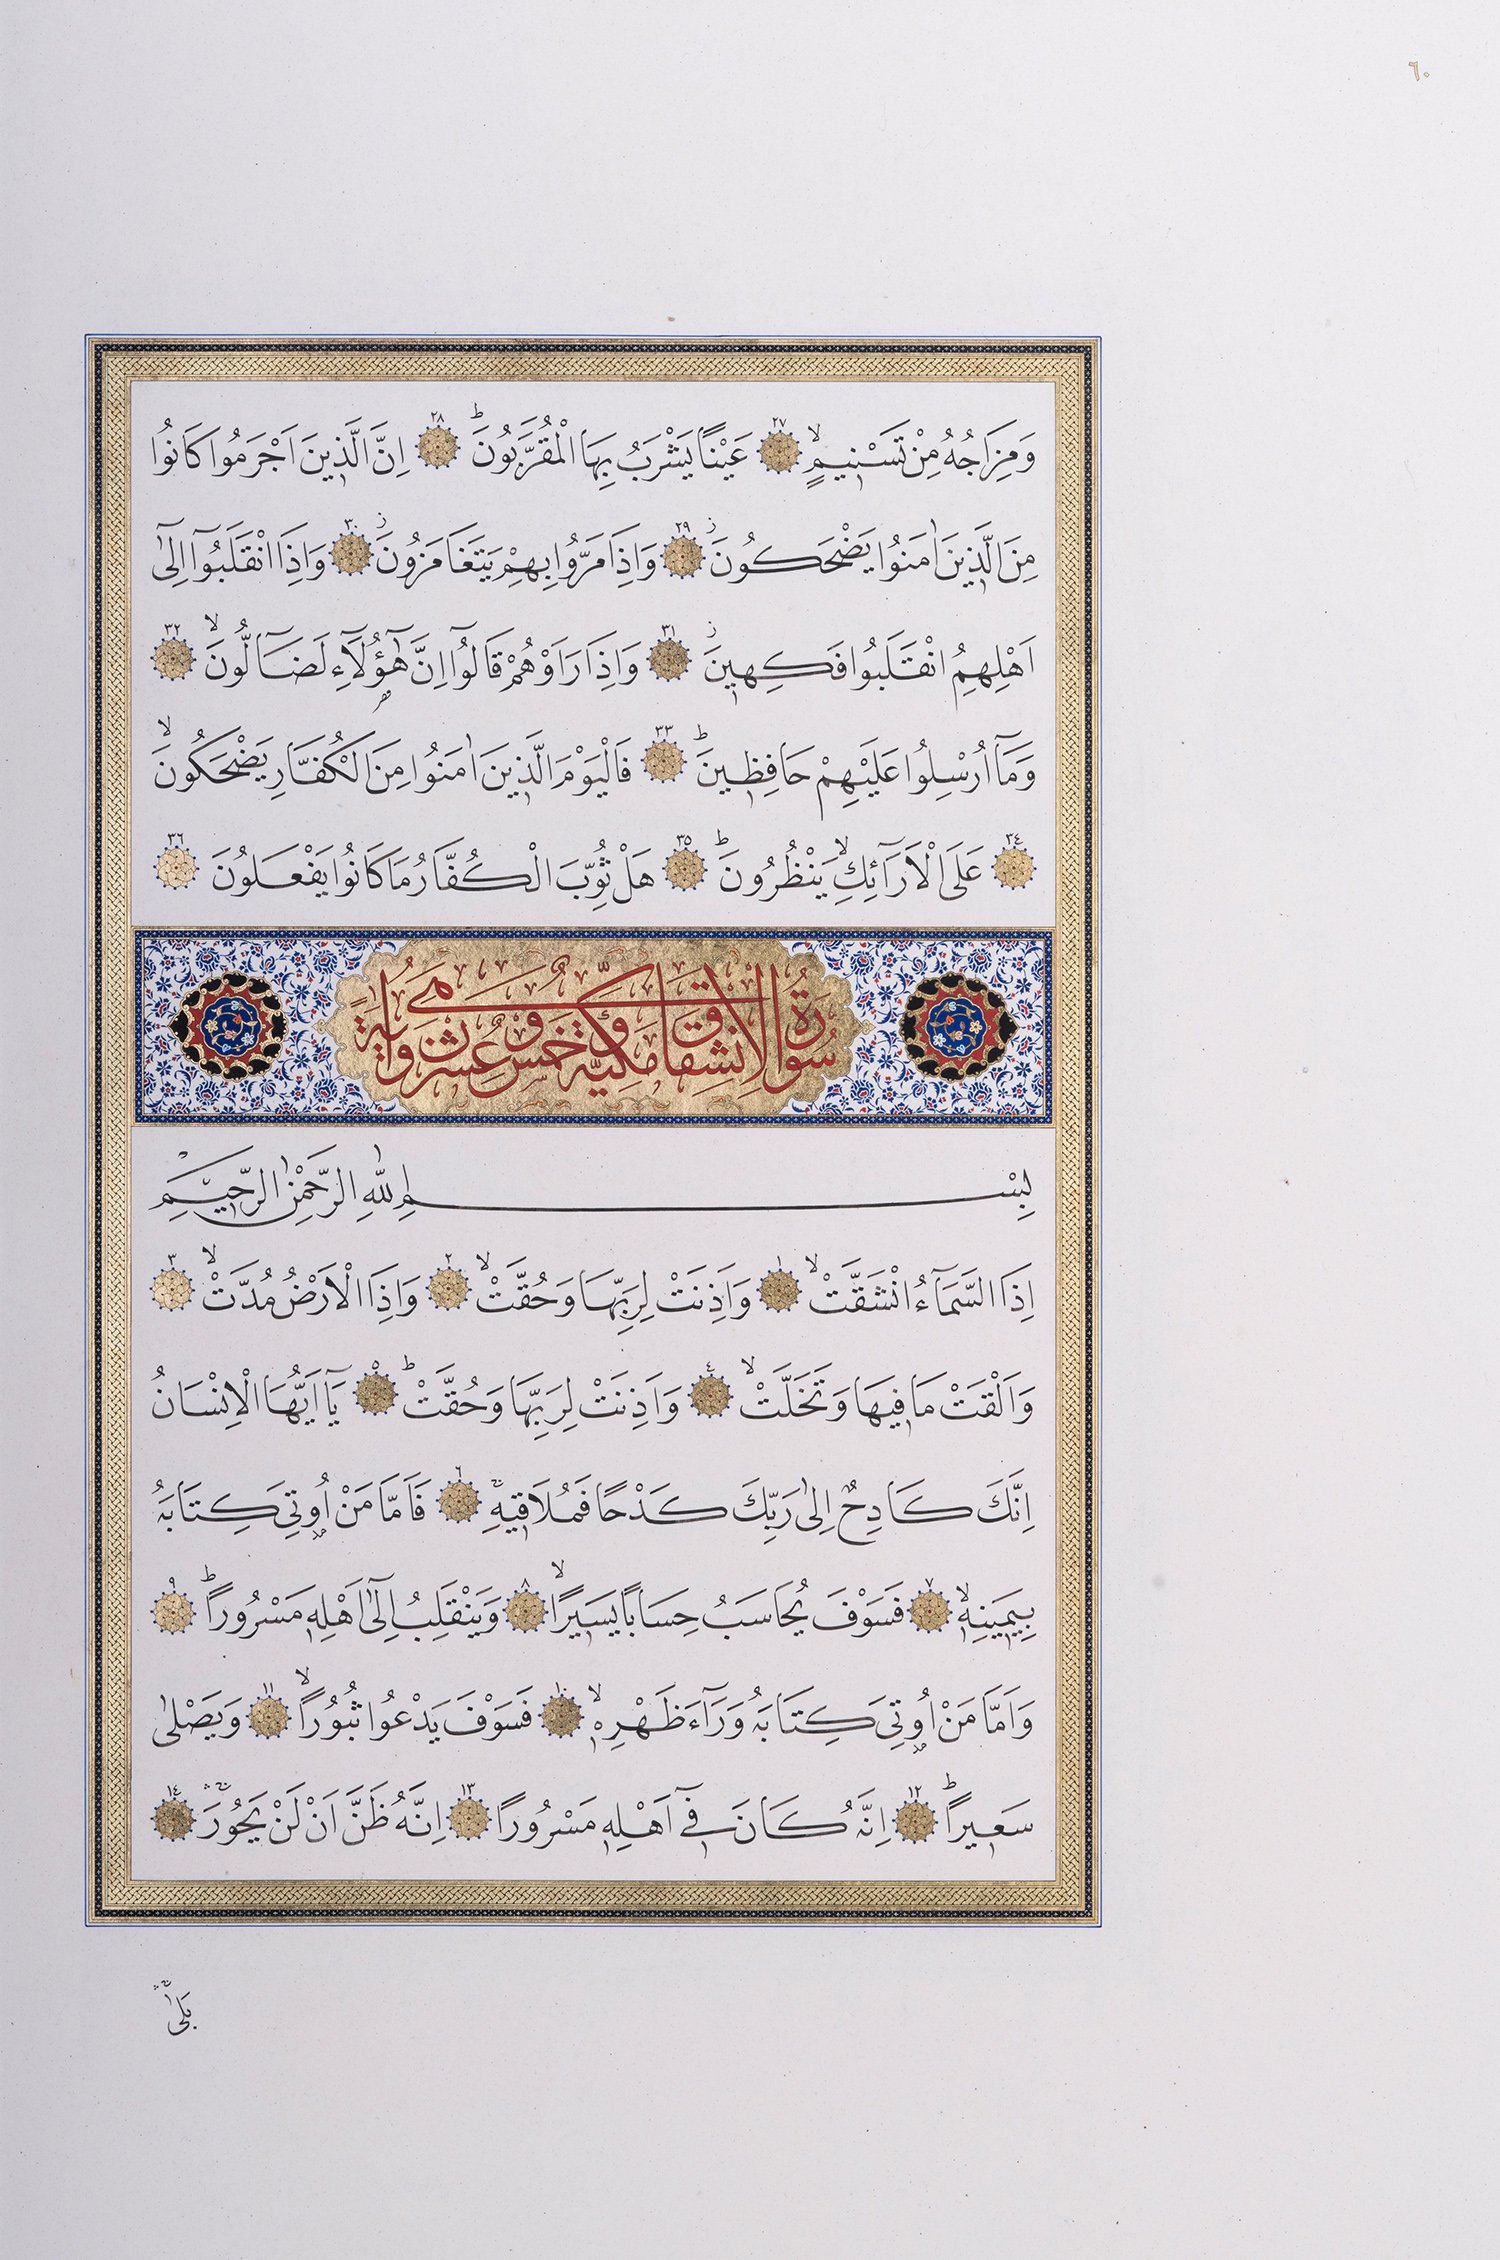 ٦٠
وَمِزَاجُهُ مِنْ تَسْنِيمٍۙ ٢٧ عَيْنًا يَشْرَبُ بِهَا الْمُقَرَّبُونَۜ ٢٨ اِنَّ الَّذِينَ اَجْرَمُوا كَانُوا
مِنَ الَّذِينَ اٰمَنُوا يَضْحَكُونَ ز ٢٩ وَاِذَا مَرُّوا بِهِمْ يَتَغَامَزُونَ ز ٣٠ وَاِذَا انْقَلَبُٓوا اِلٰٓى
اَهْلِهِمُ انْقَلَبُوا فَكِهِينَ ز ٣١ وَاِذَا رَاَوْهُمْ قَالُٓوا اِنَّ هٰٓؤُ۬لَٓاءِ لَضَٓالُّونَۙ ٣٢
وَمَٓا اُرْسِلُوا عَلَيْهِمْ حَافِظِينَۜ ٣٣ فَالْيَوْمَ الَّذِينَ اٰمَنُوا مِنَ الْكُفَّارِ يَضْحَكُونَۙ
٣٤ عَلَى الْاَرَٓائِكِۙ يَنْظُرُونَۜ ٣٥ هَلْ ثُوِّبَ الْكُفَّارُ مَا كَانُوا يَفْعَلُونَ ٣٦
سُورَةُ الْاِنْشِقَاقِ مَكِّيَّةٌ وَهِيَ خَمْسٌ وَعِشْرُونَ اٰيَةً
بِسْمِ اللّٰهِ الرَّحْمٰنِ الرَّحِيمِ
اِذَا السَّمَٓاءُ انْشَقَّتْۙ ١ وَاَذِنَتْ لِرَبِّهَا وَحُقَّتْۙ ٢ وَاِذَا الْاَرْضُ مُدَّتْۙ ٣
وَاَلْقَتْ مَا فِيهَا وَتَخَلَّتْۙ ٤ وَاَذِنَتْ لِرَبِّهَا وَحُقَّتْۜ ٥ يَٓا اَيُّهَا الْاِنْسَانُ
اِنَّكَ كَادِحٌ اِلٰى رَبِّكَ كَدْحًا فَمُلَاقِيهِۚ ٦ فَاَمَّا مَنْ اُو۫تِيَ كِتَابَهُ
بِيَمِينِهِۙ ٧ فَسَوْفَ يُحَاسَبُ حِسَابًا يَسِيرًاۙ ٨ وَيَنْقَلِبُ اِلٰٓى اَهْلِهِ مَسْرُورًاۜ ٩
وَاَمَّا مَنْ اُو۫تِيَ كِتَابَهُ وَرَٓاءَ ظَهْرِهِۙ ١٠ فَسَوْفَ يَدْعُوا ثُبُورًاۙ ١١ وَيَصْلٰى
سَعِيرًاۜ ١٢ اِنَّهُ كَانَ فِٓي اَهْلِهِ مَسْرُورًا ١٣ اِنَّهُ ظَنَّ اَنْ لَنْ يَحُورَۚۛ ١٤
بَلٰىۚۛ